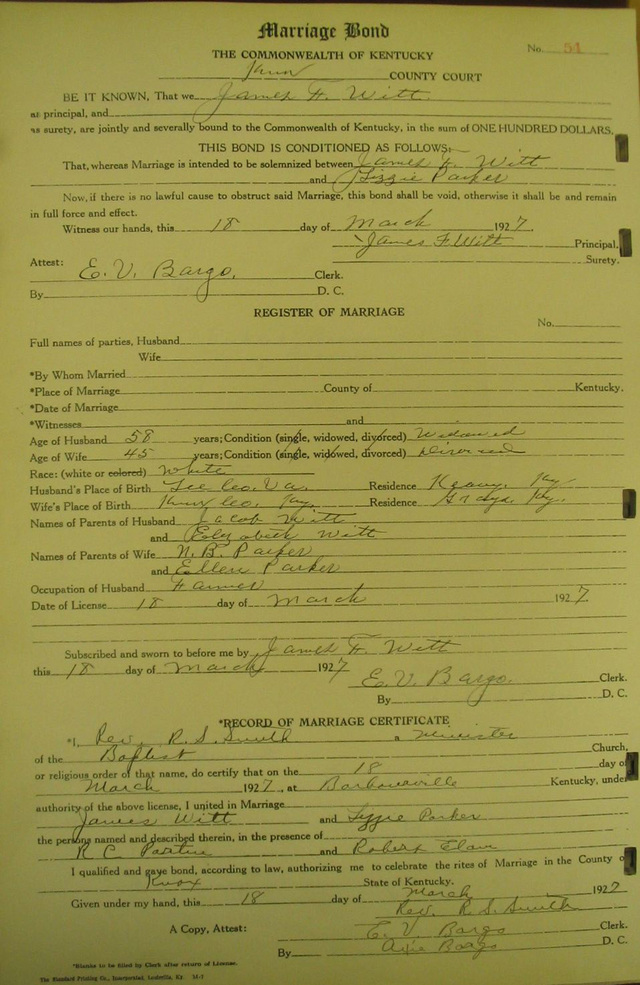 Marriage Bond
No. 51
THE COMMONWEALTH OF KENTUCKY
Knox COUNTY COURT
BE IT KNOWN, That we James F. Witt
as principal, and
as surety, are jointly and severally bound to the Commonwealth of Kentucky, in the sum of ONE HUNDRED DOLLARS.
THIS BOND IS CONDITIONED AS FOLLOWS:
That, whereas Marriage is intended to be solemnized between James F. Witt
and Lizzie Parker
Now, if there is no lawful cause to obstruct said Marriage, this bond shall be void, otherwise it shall be and remain
in full force and effect.
Witness our hands, this 18 day of March 1927.
James F. Witt Principal.
Surety.
Attest: E. V. Bargo. Clerk.
By D. C.
REGISTER OF MARRIAGE
No.
Full names of parties, Husband
Wife
*By Whom Married
*Place of Marriage County of Kentucky.
*Date of Marriage
*Witnesses and
Age of Husband 58 years; Condition (single, widowed, divorced) Widowed
Age of Wife 45 years; Condition (single, widowed, divorced) Divorced
Race: (white or colored) White
Husband's Place of Birth Lee Co. Va. Residence Ky.
Wife's Place of Birth Knox Co. Ky. Residence Grays, Ky.
Names of Parents of Husband Jacob Witt
and Elizabeth Witt
Names of Parents of Wife N. B. Parker
and Ellen Parker
Occupation of Husband Farmer
Date of License 18 day of March 1927.
Subscribed and sworn to before me by James F. Witt
this 18 day of March 1927
E. V. Bargo. Clerk.
By D. C.
*RECORD OF MARRIAGE CERTIFICATE
*I, Rev. R. S. Smith a Minister
of the Baptist Church,
or religious order of that name, do certify that on the 18 day of
March 1927, at Barbourville Kentucky, under
authority of the above license, I united in Marriage
James Witt and Lizzie Parker
the persons named and described therein, in the presence of
R. C. and Robert
I qualified and gave bond, according to law, authorizing me to celebrate the rites of Marriage in the County of
Knox State of Kentucky.
Given under my hand, this 18 day of March 1927
Rev. R. S. Smith
A Copy, Attest: E. V. Bargo Clerk.
By Bargo D. C.
*Blanks to be filled by Clerk after return of License.
The Standard Printing Co., Incorporated, Louisville, Ky.